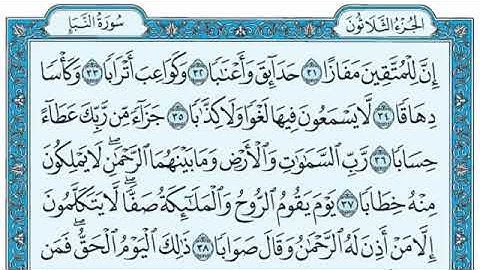 الجزء الثلاثون
سورة النبإ
إِنَّ لِلْمُتَّقِينَ مَفَازًا ٣١ حَدَآئِقَ وَأَعْنَٰبًا ٣٢ وَكَوَاعِبَ أَتْرَابًا ٣٣ وَكَأْسًا
دِهَاقًا ٣٤ لَّا يَسْمَعُونَ فِيهَا لَغْوًا وَلَا كِذَّٰبًا ٣٥ جَزَآءً مِّن رَّبِّكَ عَطَآءً
حِسَابًا ٣٦ رَّبِّ ٱلسَّمَٰوَٰتِ وَٱلْأَرْضِ وَمَا بَيْنَهُمَا ٱلرَّحْمَٰنِ ۖ لَا يَمْلِكُونَ
مِنْهُ خِطَابًا ٣٧ يَوْمَ يَقُومُ ٱلرُّوحُ وَٱلْمَلَٰٓئِكَةُ صَفًّا ۖ لَّا يَتَكَلَّمُونَ
إِلَّا مَنْ أَذِنَ لَهُ ٱلرَّحْمَٰنُ وَقَالَ صَوَابًا ٣٨ ذَٰلِكَ ٱلْيَوْمُ ٱلْحَقُّ ۖ فَمَن